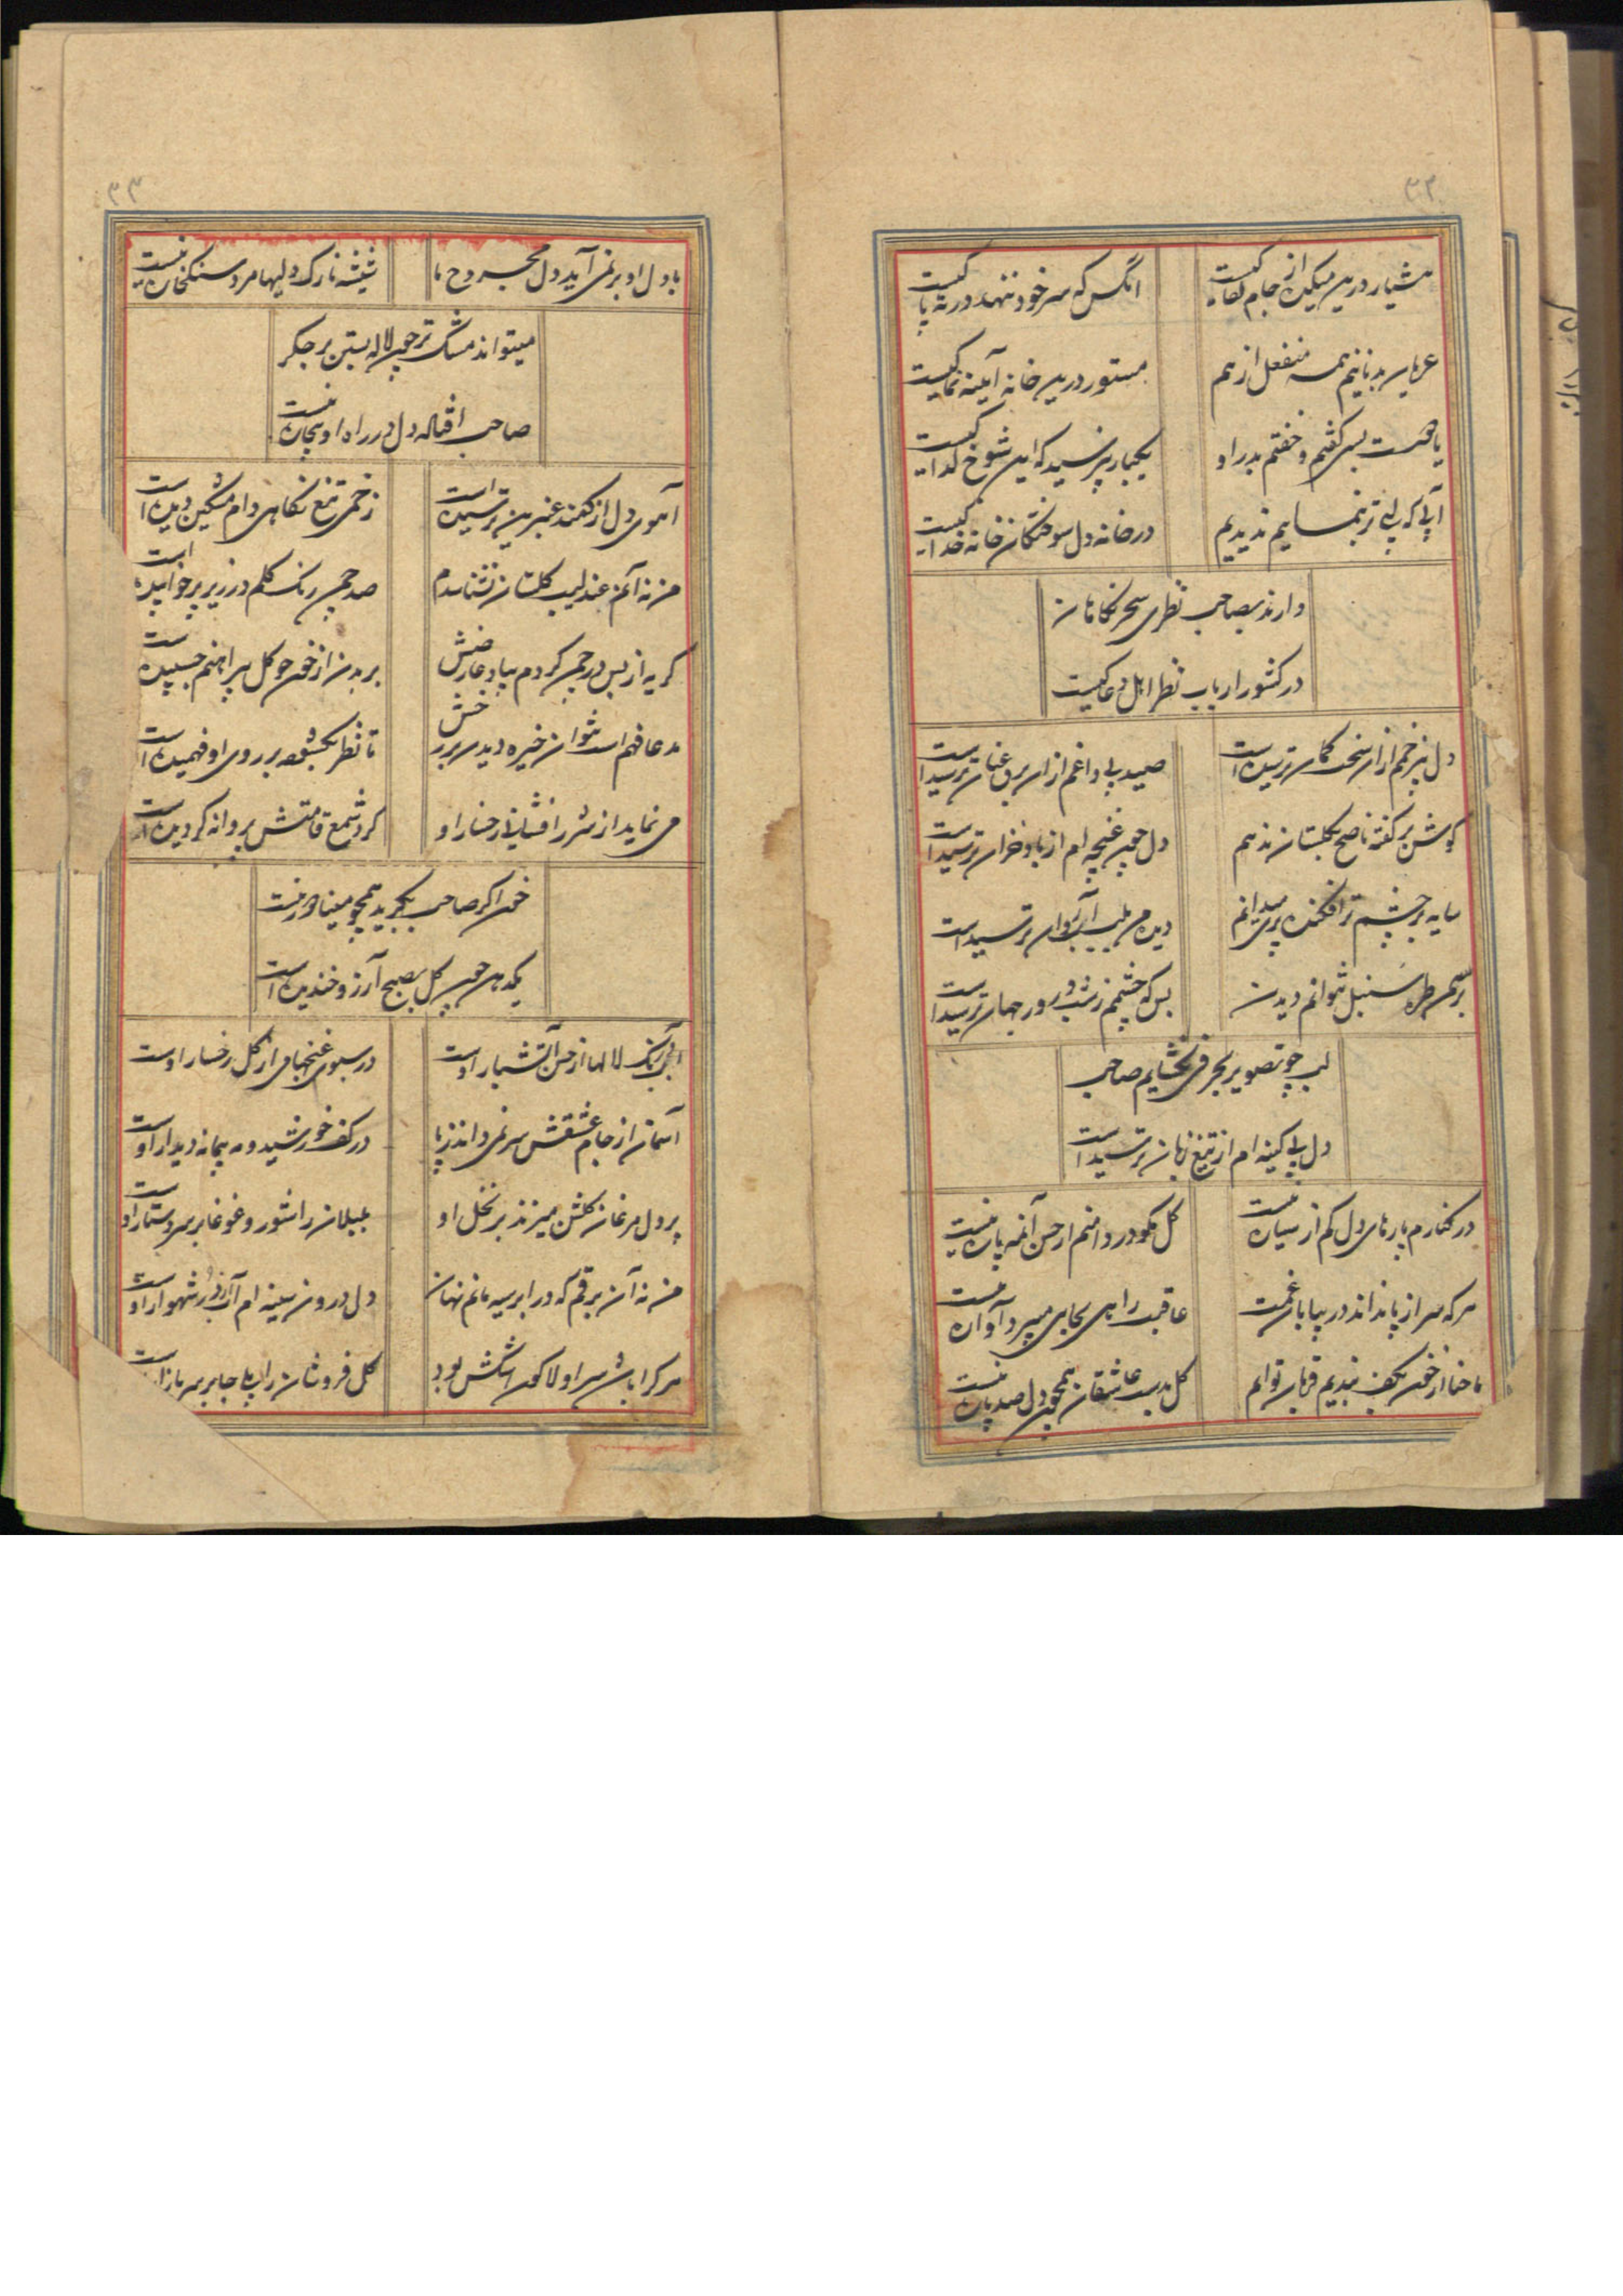 ۳۲
هشیار درین میکده از جام لقا کیست
آنکس که سر خود ننهد در ته پا کیست
عریان بدنانیم همه منفعل از هم
مستور درین خانه آیینه نما کیست
یاهست بسی گفتم و خفتم بدر او
یکبار نپرسید که این شوخ گدا کیست
در خانه دل سوختگان خانه خدا کیست
دارند بصاحب نظری سحر نگاهان
در کشور ارباب نظر اهل دعا کیست
دل پر زخمم ازان سخت کمان ترسیده است
صید بی داغم ازان برق عنان ترسیده است
گوش بر گفته ناصح بگلستان ندهم
دل چون غنچه ام از باد خزان ترسیده است
سایه بر چشم تر افکنده پری میدانم
دیده من بلب آب روان ترسیده است
بر سر طره سنبل نتوانم دیدن
بس که چشمم ز شب و روز جهان ترسیده است
لب چو تصویر بحرفی نگشایم صاحب
دل بی کینه ام از تیغ زبان ترسیده است
در کنارم پارهای دل کم از سیاره نیست
گل مگو در دامنم از حسن آتشپاره نیست
هر که سر از پا نداند در بیابان غمت
عاقبت راهی بجایی میبرد آواره نیست
ما حنا از خون بکف بندیم قربان توایم
گل بدست عاشقان همچون دل صدپاره نیست
۳۳
با دل او برنمی آید دل مجروح ما
شیشه نازک دلیها مرد سنگخاره نیست
میتواند مشک تر چون لاله بستن بر جگر
صاحب اقباله دل در راه او بیچاره نیست
آهوی دل از کمند عنبرین ترسیده است
زخمی تیغ نگاهی دام مشکین دیده است
من نه آنم عندلیب گلستان نشناسدم
صد چمن رنگ گلم در زیر پر خوابیده است
گریه از بس در چمن کردم بیاد عارضش
بر بدن از خون چو گل پیراهنم چسپیده است
مدعا فهم است نتوان خیره دیدن بر رخش
تا نظر بگشوده بر روی او فهمیده است
می نماید از شرر افشانی رخسار او
گرد شمع قامتش پروانه گردیده است
خون اگر صاحب بگرید همچو مینا دور نیست
یکدهن چون گل بصبح آرزو خندیده است
آب و رنگ لالها از حسن آتشبار اوست
در سبوی غنچها می از گل رخسار اوست
آسمان از جام عشقش سر نمی داند ز پا
در کف خورشید و مه پیمانه دیدار اوست
پر دل مرغان گلشن میزند بر نخل او
بلبلان را شور و غوغا بر سر دستار اوست
من نه آن برقم که در ابر سیه مانم نهان
دل درون سینه ام آب در شهوار اوست
هر کرا باشد سر او لاله گون اشکش بود
گل فروشان را بپا جا بر سر بازار